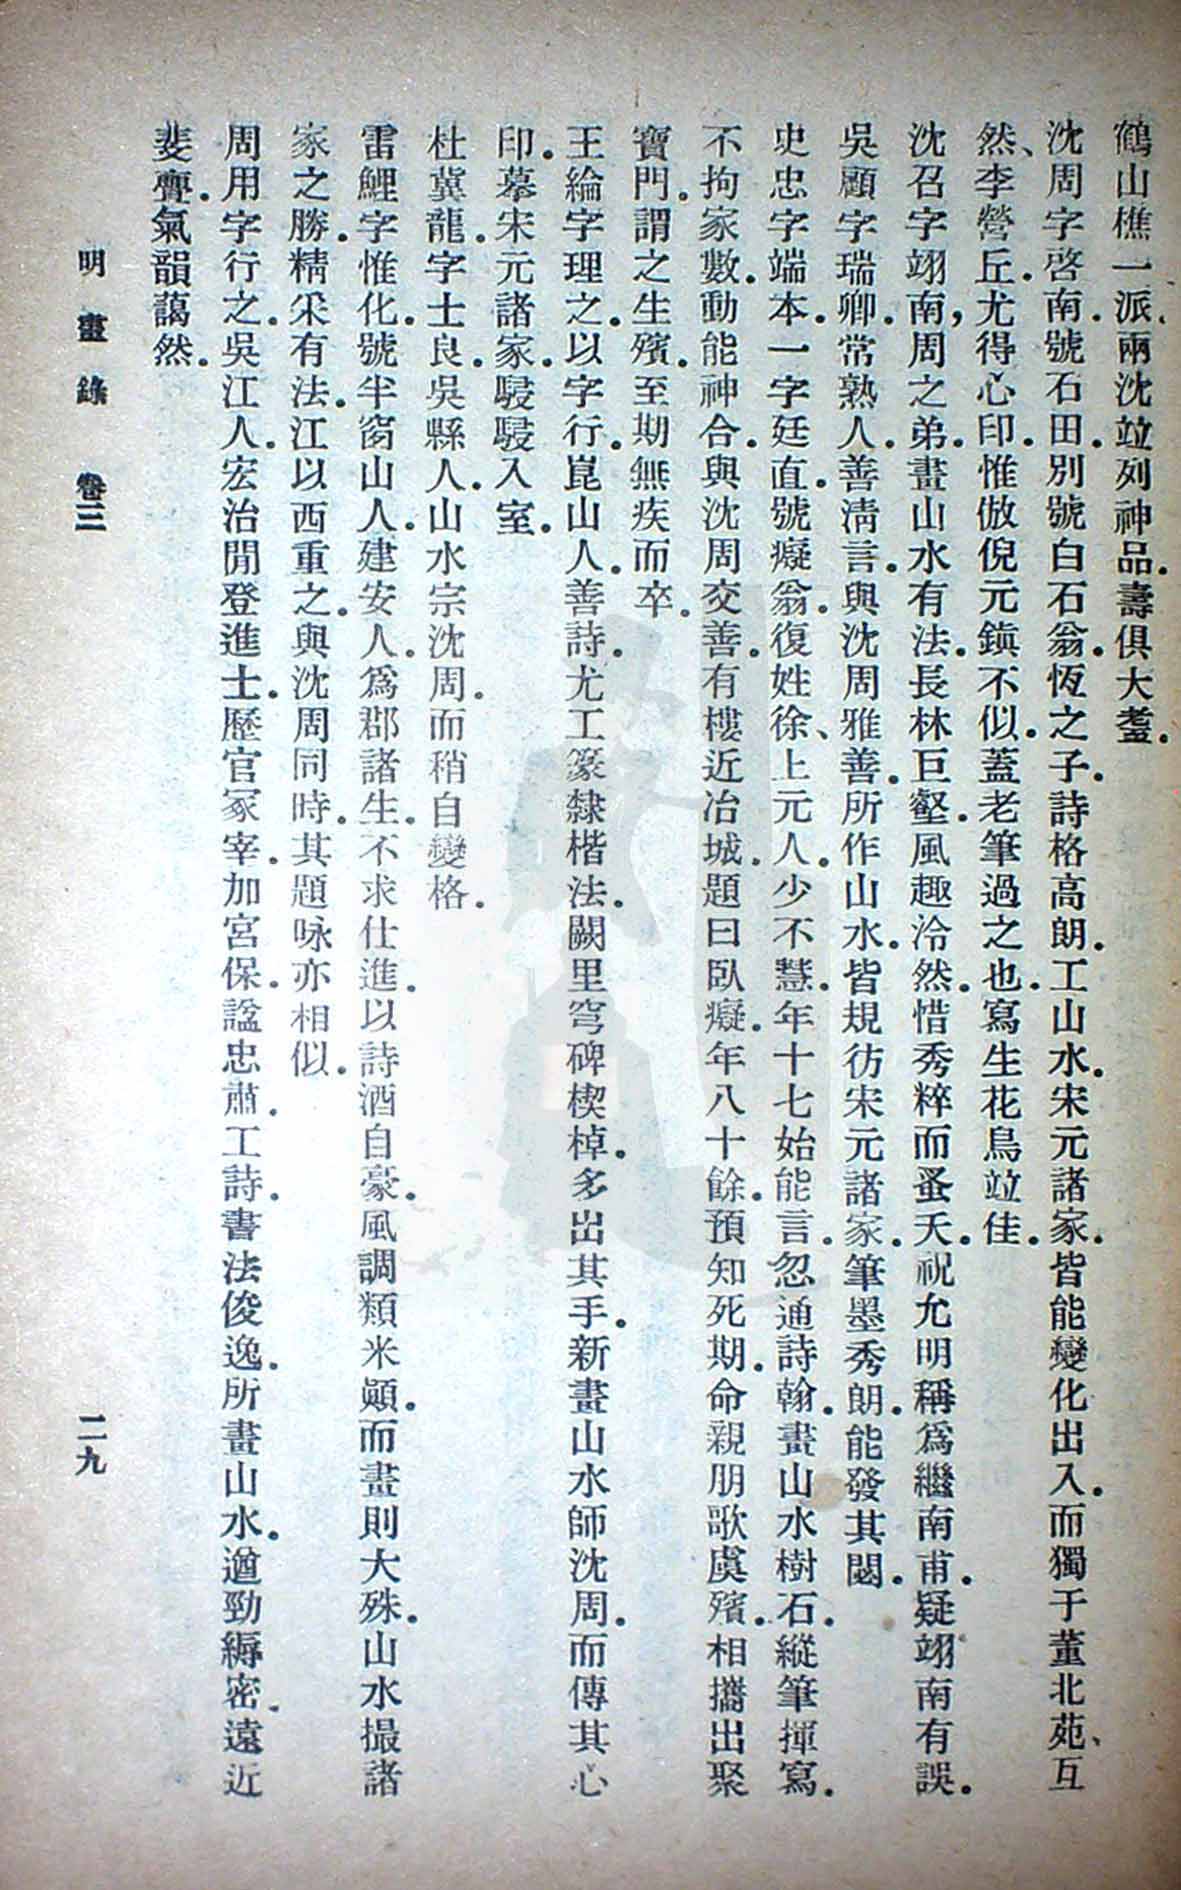 鶴山樵一派。兩沈竝列神品。壽俱大耋。
沈周字啓南。號石田。別號白石翁。恆之子。詩格高朗。工山水。宋元諸家。皆能變化出入。而獨于董北苑、互
然、李營丘。尤得心印。惟倣倪元鎭不似。蓋老筆過之也。寫生花鳥竝佳。
沈召字翊南，周之弟。畫山水有法。長林巨壑。風趣泠然。惜秀粹而蚤夭。祝允明稱爲繼南甫。疑翊南有誤。
吳顧字瑞卿。常熟人。善淸言。與沈周雅善。所作山水。皆規彷宋元諸家。筆墨秀朗。能發其閟。
史忠字端本。一字廷直。號癡翁。復姓徐、上元人。少不慧。年十七始能言。忽通詩翰。畫山水樹石。縱筆揮寫。
不拘家數。動能神合。與沈周交善。有樓近冶城。題曰臥癡。年八十餘。預知死期。命親朋歌虞殯。相攜出聚
寶門。謂之生殯。至期無疾而卒。
王綸字理之。以字行。崑山人。善詩。尤工篆隸楷法。闕里穹碑楔棹。多出其手。新畫山水師沈周。而傳其心
印。摹宋元諸家。駸駸入室。
杜冀龍。字士良。吳縣人。山水宗沈周。而稍自變格。
雷鯉字惟化。號半窗山人。建安人。爲郡諸生。不求仕進。以詩酒自豪。風調類米顚。而畫則大殊。山水撮諸
家之勝。精采有法。江以西重之。與沈周同時。其題咏亦相似。
周用字行之。吳江人。宏治閒登進士。歷官冢宰。加宮保。諡忠肅。工詩。書法俊逸。所畫山水。遒勁縟密。遠近
斐亹。氣韻藹然。
明畫錄 卷三 二九